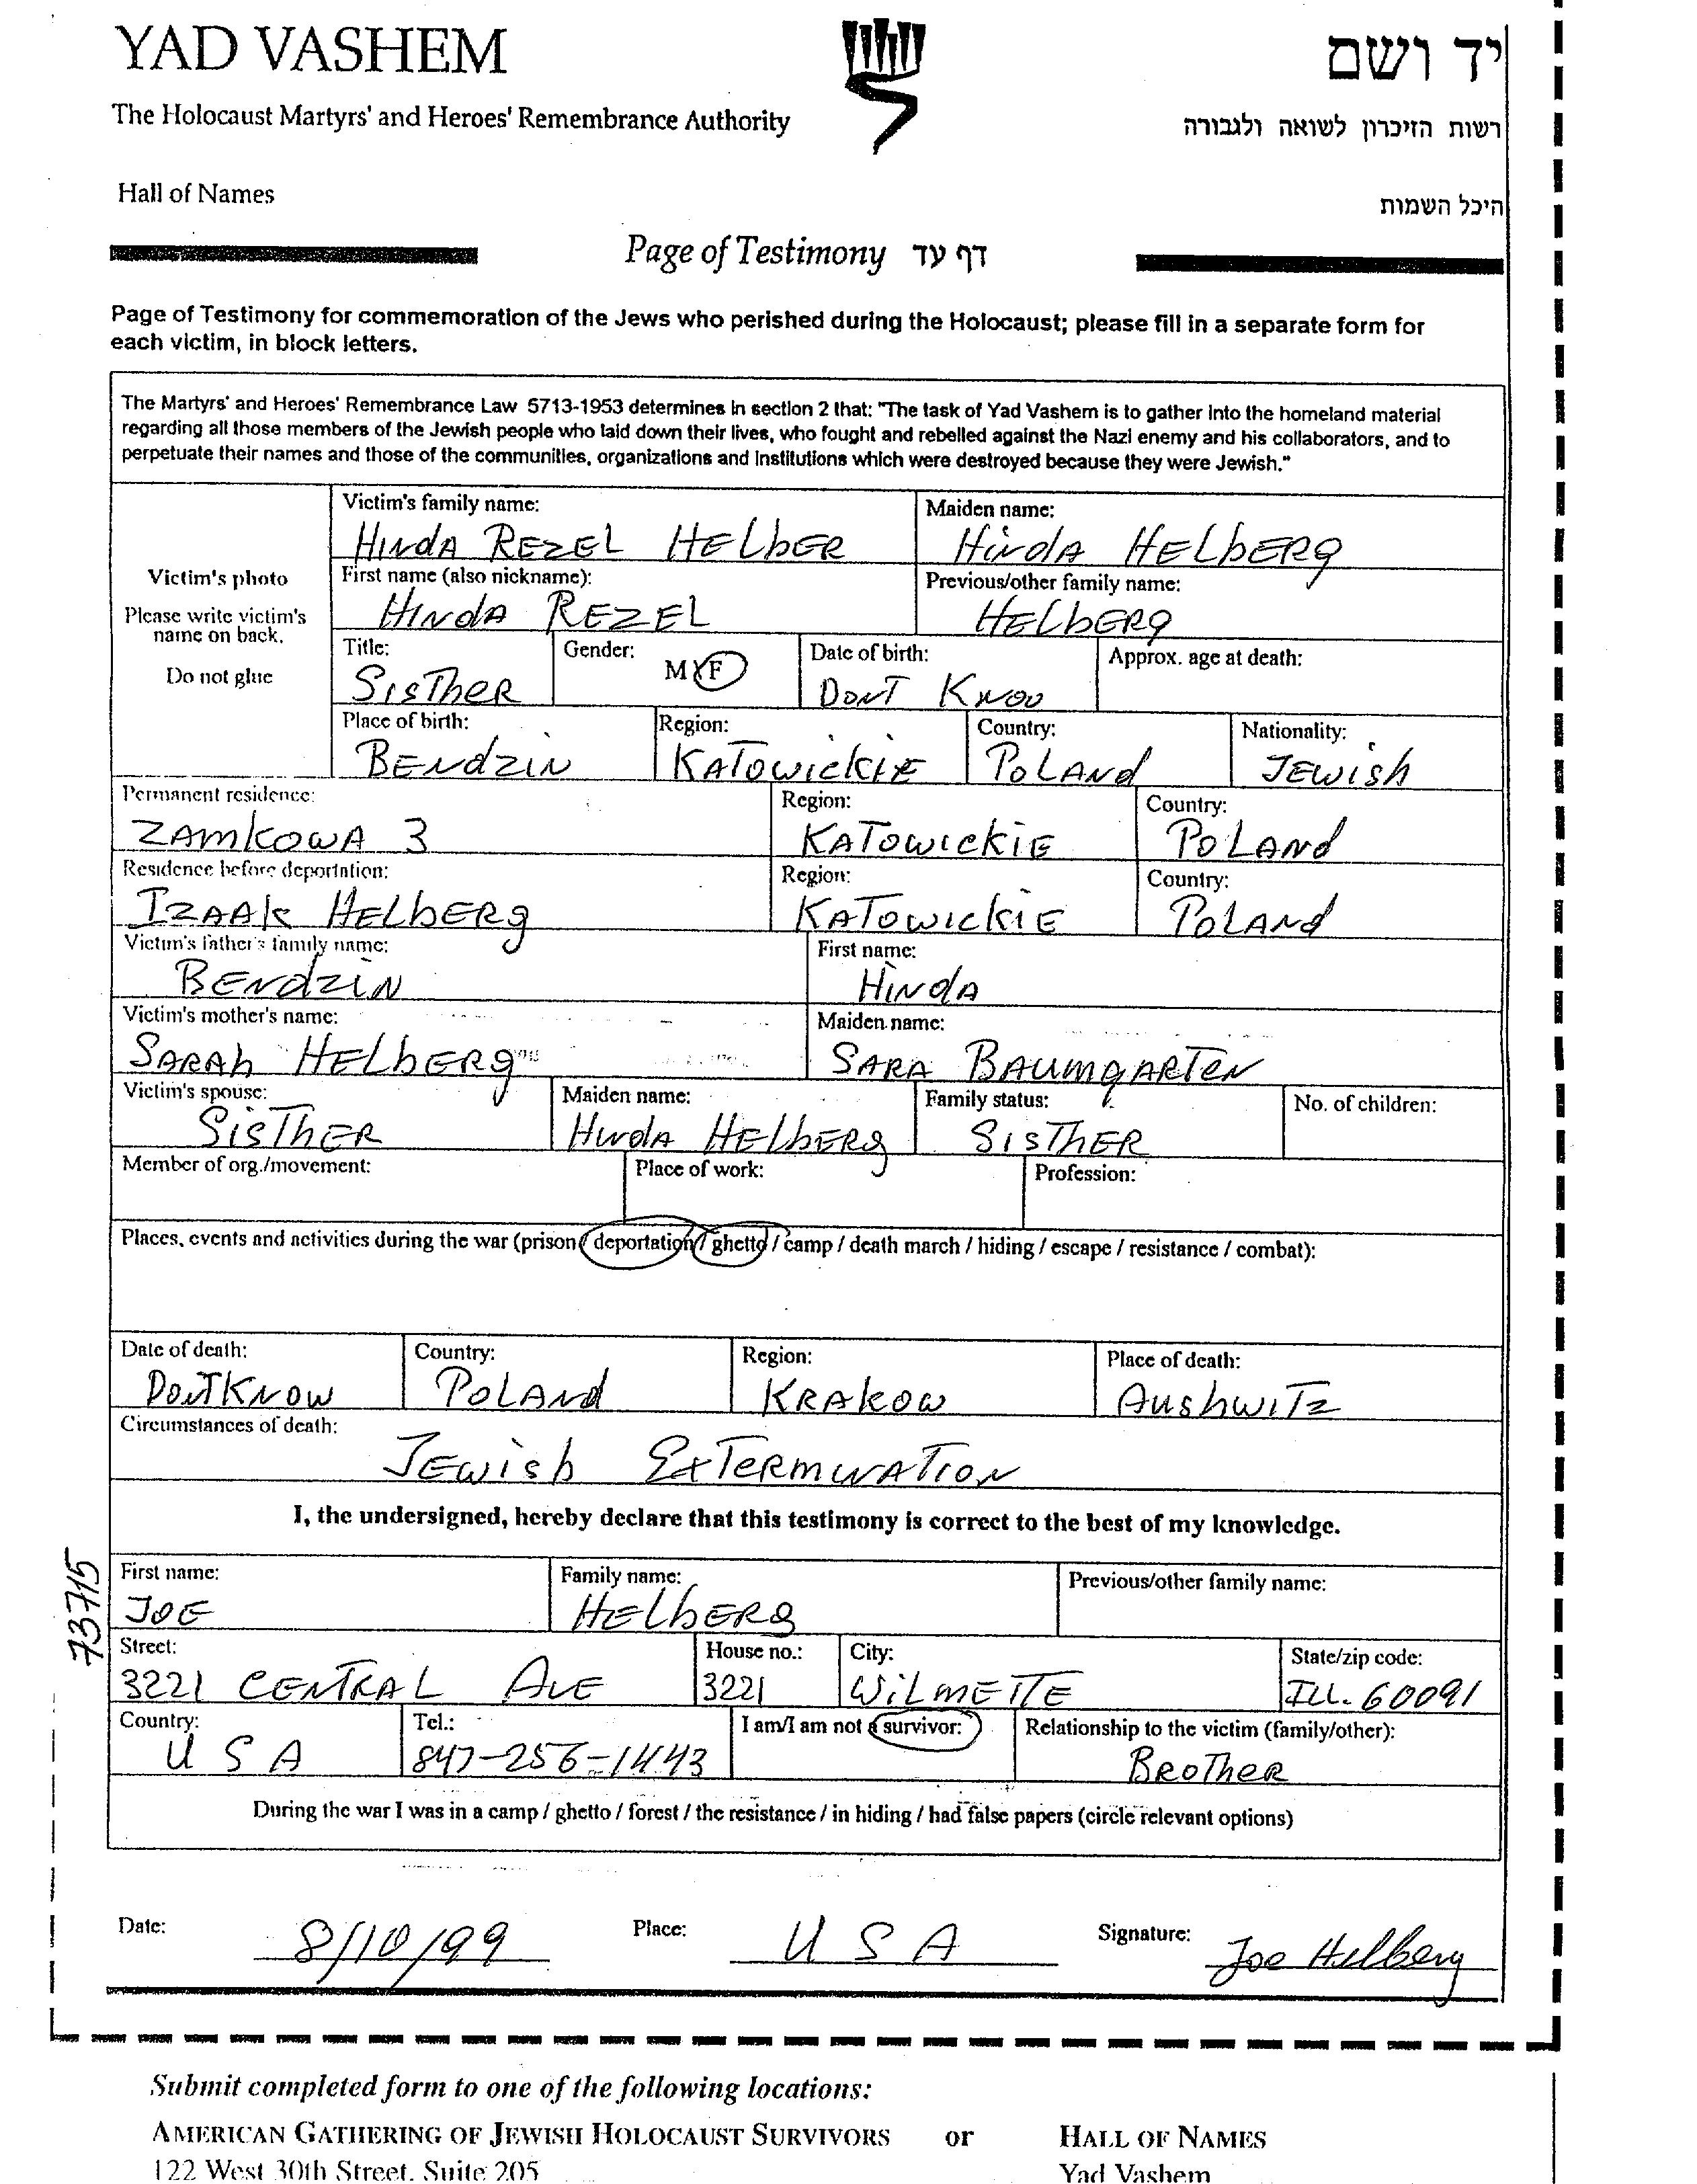 YAD VASHEM
יד ושם
The Holocaust Martyrs' and Heroes' Remembrance Authority
רשות הזיכרון לשואה ולגבורה
Hall of Names
היכל השמות
Page of Testimony דף עד
Page of Testimony for commemoration of the Jews who perished during the Holocaust; please fill in a separate form for
each victim, in block letters.
The Martyrs' and Heroes' Remembrance Law 5713-1953 determines in section 2 that: "The task of Yad Vashem is to gather into the homeland material
regarding all those members of the Jewish people who laid down their lives, who fought and rebelled against the Nazi enemy and his collaborators, and to
perpetuate their names and those of the communities, organizations and institutions which were destroyed because they were Jewish."
Victim's photo
Please write victim's
name on back.
Do not glue
Victim's family name: Maiden name:
HINdA REZEL HELbER HindA HELbERg
First name (also nickname): Previous/other family name:
HINdA REZEL HELbERg
Title: Gender: M/F Date of birth: Approx. age at death:
SisTheR DonT Know
Place of birth: Region: Country: Nationality:
BENdziN KATowickiE PoLANd JEWish
Permanent residence: Region: Country:
ZAmkowA 3 KATowickiE PoLANd
Residence before deportation: Region: Country:
IZAAk HELbERg KATowickiE PoLANd
Victim's father's family name: First name:
BENdziN HiNdA
Victim's mother's name: Maiden name:
SARAh HELbERg SARA BAUmgARTEN
Victim's spouse: Maiden name: Family status: No. of children:
SisThER HindA HELbERg SISThER
Member of org./movement: Place of work: Profession:
Places, events and activities during the war (prison / deportation / ghetto / camp / death march / hiding / escape / resistance / combat):
Date of death: Country: Region: Place of death:
DonT KNow PoLANd KRAkow AushwiTz
Circumstances of death:
JEwish ExTERmiNATioN
I, the undersigned, hereby declare that this testimony is correct to the best of my knowledge.
73715
First name: Family name: Previous/other family name:
JOE HELbERg
Street: House no.: City: State/zip code:
3221 CENTRAL AvE 3221 WiLMETTE ILL. 60091
Country: Tel.: I am/I am not a survivor: Relationship to the victim (family/other):
U S A 847-256-1443 BRoTheR
During the war I was in a camp / ghetto / forest / the resistance / in hiding / had false papers (circle relevant options)
Date: 8/10/99 Place: U S A Signature: Joe Helberg
Submit completed form to one of the following locations:
AMERICAN GATHERING OF JEWISH HOLOCAUST SURVIVORS or HALL OF NAMES
122 West 30th Street, Suite 205 Yad Vashem